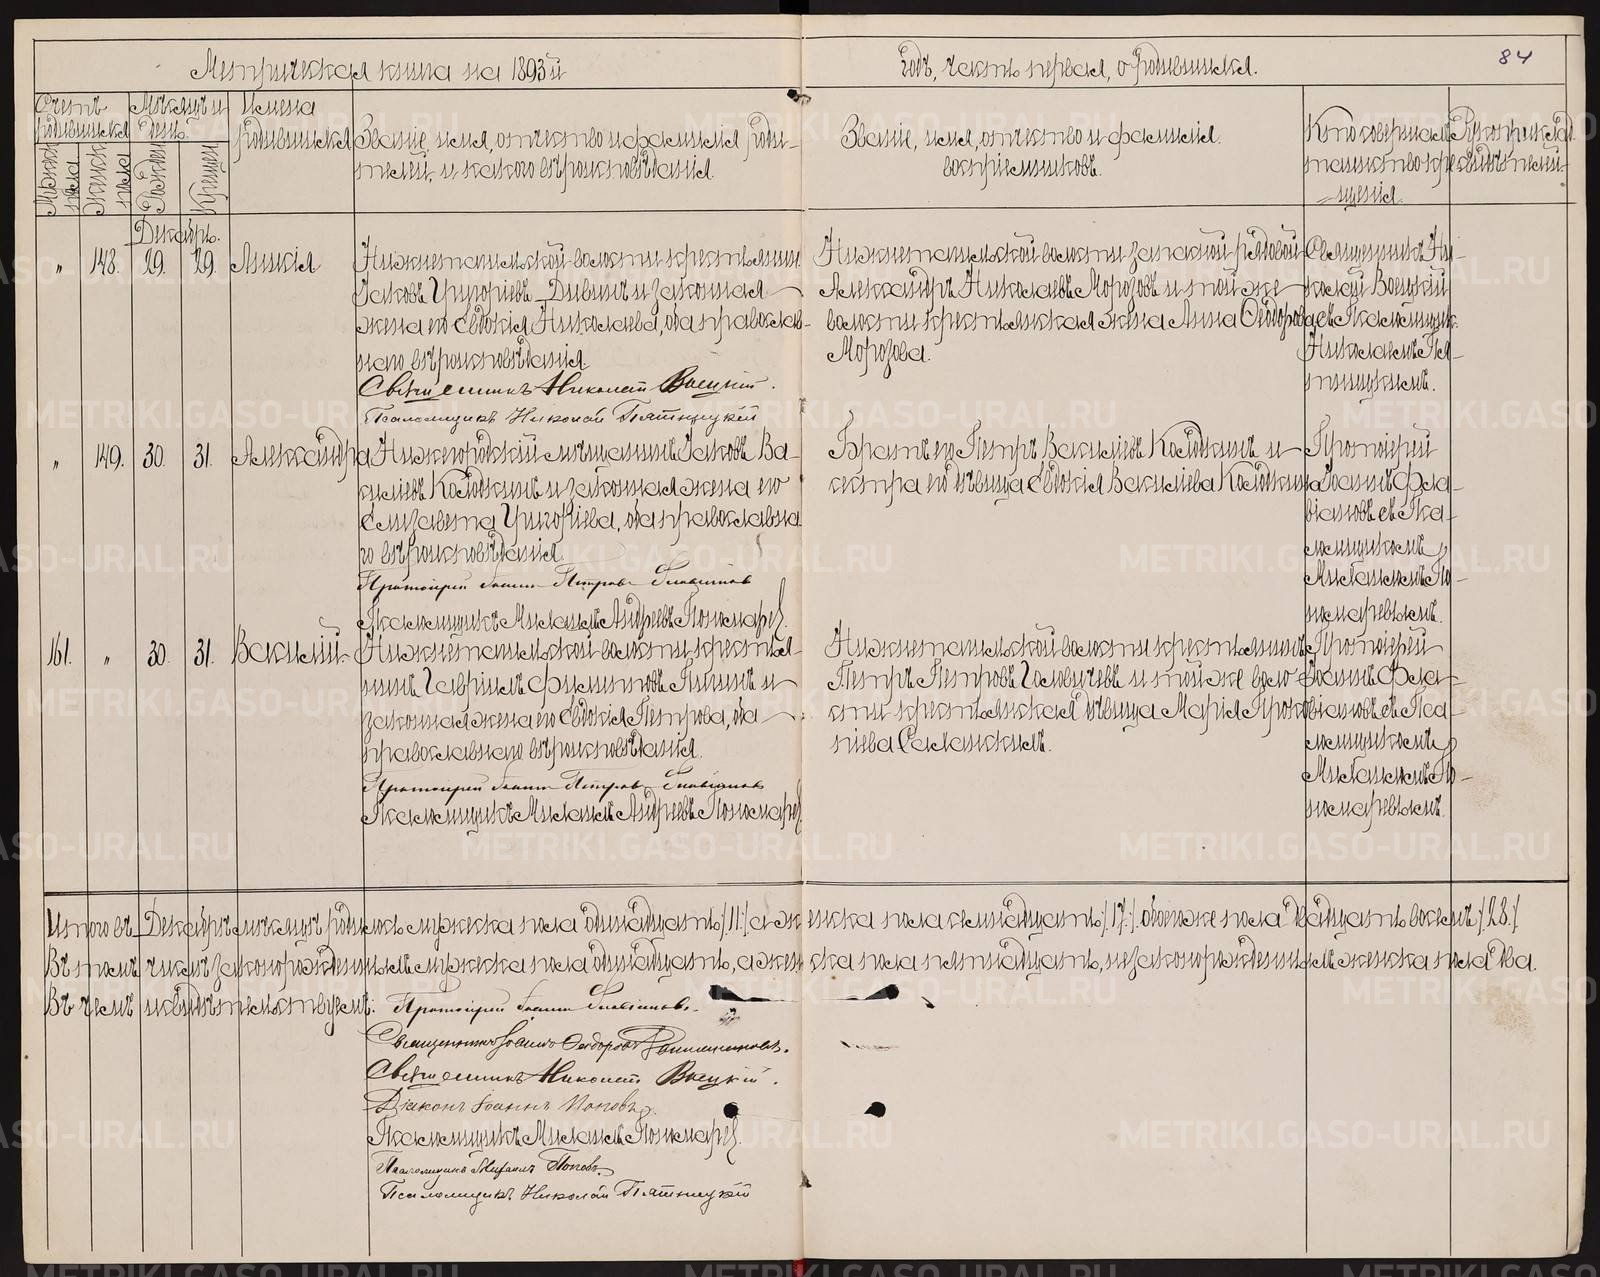 Метрическая книга на 1893й
Годъ, часть первая, о родившихся.
84
Счетъ родившихся
Мужеска пола
Женска пола
Мѣсяцъ и день.
Рожденія
Крещенія
Имена родившихся
Званіе, имя, отчество и фамилія роди-
телей, и какого вѣроисповѣданія.
Званіе, имя, отчество и фамилія
воспріемниковъ.
Кто совершалъ
таинство кре-
щенія.
Декабрь.
„ 148. 29. 29. Анисія
Нижнетагильской волости крестьянинъ
Іаковъ Григоріевъ Дивинъ и законная
жена его Евдокія Николаева, оба православ-
наго вѣроисповѣданія
Священникъ Николай
Псаломщикъ Николай Пятницкій
Нижнетагильской волости запасной рядовой
Александръ Николаевъ Морозовъ и той же
волости крестьянская жена Анна Ѳеодорова
Морозова.
Священникъ Ни-
колай
съ Псаломщик.
Николаемъ Пя-
тницкимъ.
„ 149. 30. 31. Александра
Нижегородскій мѣщанинъ Іаковъ Ва-
силіевъ Колодкинъ и законная жена его
Елизавета Григоріева, оба православна
го вѣроисповѣданія
Протоіерей Іоаннъ Петровъ Флавіановъ
Псаломщикъ Михаилъ Андреевъ Пономарев
Братъ его Петръ Василіевъ Колодкинъ и
сестра его дѣвица Евдокія Василіева Колодкина
Протоіерей
Іоаннъ Фла-
віановъ съ Пса-
ломщикомъ
Михаиломъ По-
номаревымъ.
161. „ 30. 31. Василий
Нижнетагильской волости крестья-
нинъ Гавріилъ Филипповъ и
законная жена его Евдокія Петрова, оба
православнаго вѣроисповѣданія.
Протоіерей Іоаннъ Петровъ Флавіановъ
Псаломщикъ Михаилъ Андреевъ Пономарев
Нижнетагильской волости крестьянинъ
Петръ Петровъ Головачевъ и той же воло-
сти крестьянская дѣвица Марія Проко
піева
Протоіерей
Іоаннъ Фла-
віановъ съ Пса-
ломщикомъ
Михаиломъ По-
номаревымъ.
Итого въ Декабрѣ мѣсяцѣ родилось мужеска пола одиннадцать /11./ а женска пола семнадцать /17./ обоего же пола двадцать восемь /28./
Въ томъ числѣ законорожденныхъ мужеска пола одиннадцать, а женска пола пятнадцать, незаконорожденныхъ женска пола два.
Въ чемъ и свидѣтельствуемъ:
Протоіерей Іоаннъ Флавіановъ.
Священникъ Іоаннъ Ѳеодоровъ
Священникъ Николай
Діаконъ Іоаннъ Поповъ.
Псаломщикъ Михаилъ Пономарев
Псаломщикъ Поповъ
Псаломщикъ Николай Пятницкій
METRIKI.GASO-URAL.RU